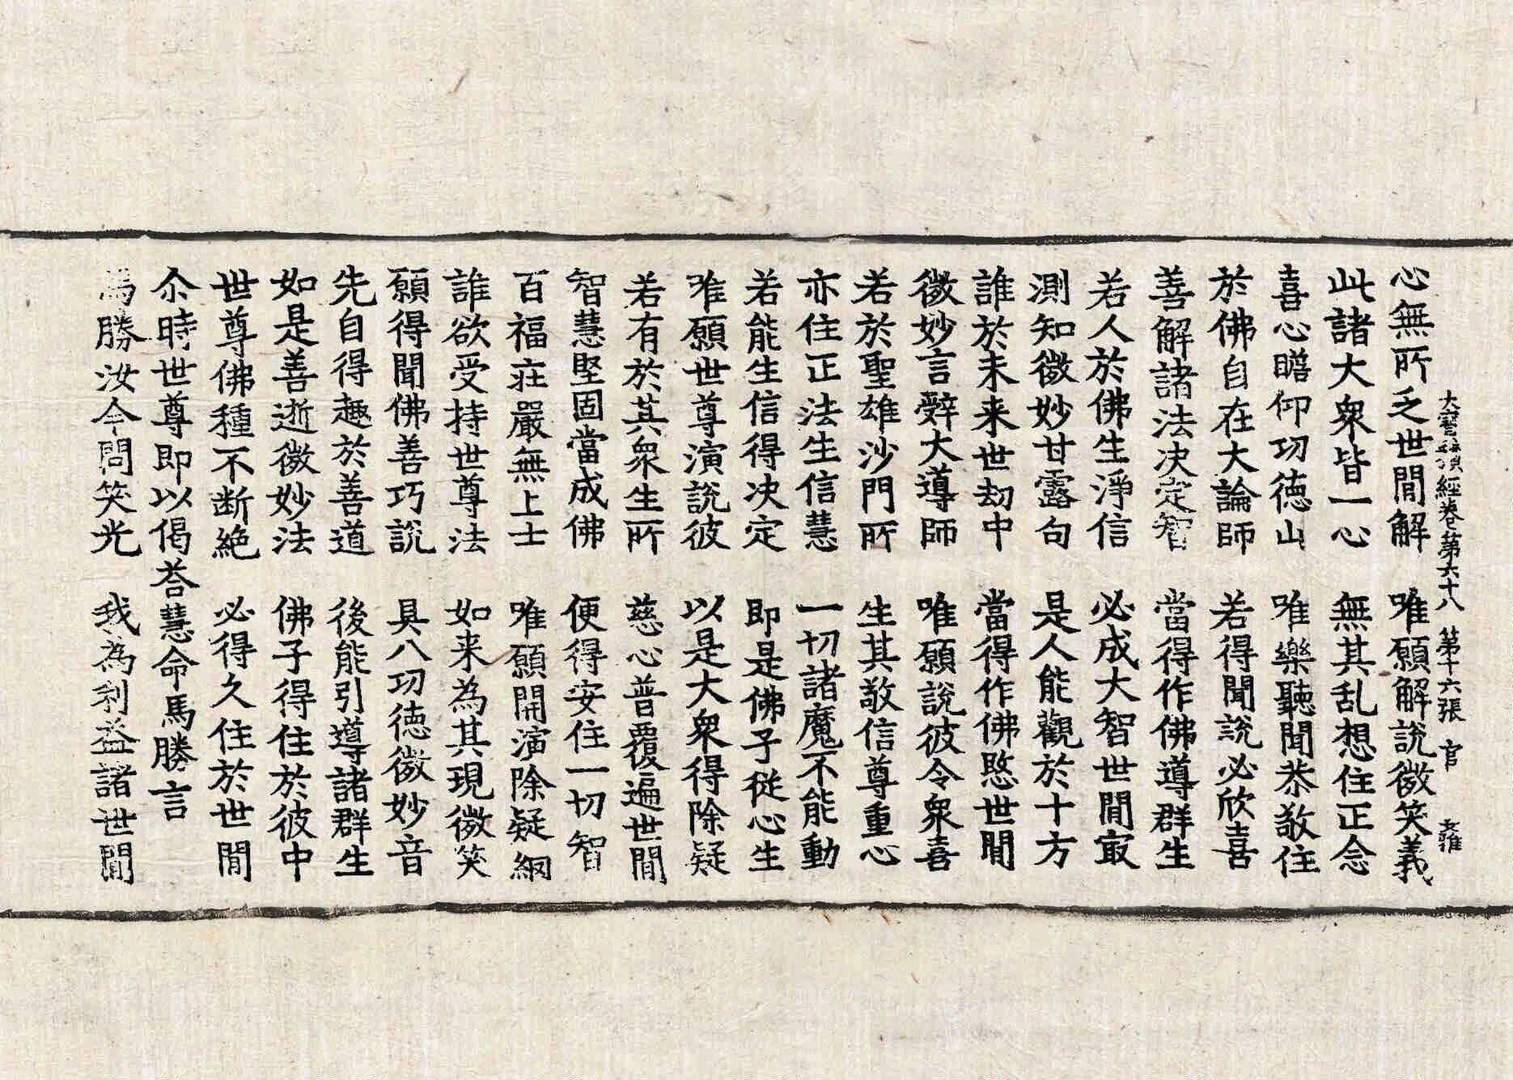 大寶積經卷第六十八 第十六張 官 
心無所乏世閒解 唯願解說微笑義
此諸大衆皆一心 無其乱想住正念
喜心瞻仰功徳山 唯樂聽聞恭敬住
於佛自在大論師 若得聞說必欣喜
善解諸法决定智 當得作佛導群生
若人於佛生淨信 必成大智世閒㝡
測知微妙甘露句 是人能觀於十方
誰於未来世劫中 當得作佛愍世閒
微妙言辭大導師 唯願說彼令衆喜
若於聖雄沙門所 生其敬信尊重心
亦住正法生信慧 一切諸魔不能動
若能生信得决定 即是佛子從心生
唯願世尊演說彼 以是大衆得除疑
若有於其衆生所 慈心普覆遍世閒
智慧堅固當成佛 便得安住一切智
百福莊嚴無上士 唯願開演除疑網
誰欲受持世尊法 如来為其現微笑
願得聞佛善巧說 具八功徳微妙音
先自得趣於善道 後能引導諸群生
如是善逝微妙法 佛子得住於彼中
世尊佛種不断絶 必得久住於世閒
尒時世尊即以偈荅慧命馬勝言
馬勝汝今問笑光 我為利益諸世閒